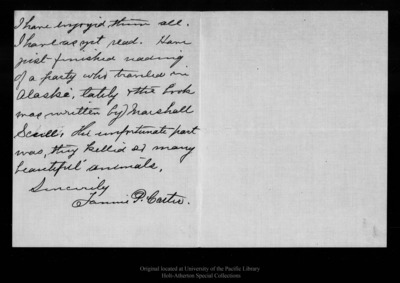 I have enjoyed them all.
I have as yet read. Have
just finished reading
of a party who traveled in
Alaska, lately & the book
was written by Marshall
Scull. The unfortunate part
was, they killed so many
beautiful animals.
Sincerely
Fannie P. Castle.
Original located at University of the Pacific Library
Holt-Atherton Special Collections